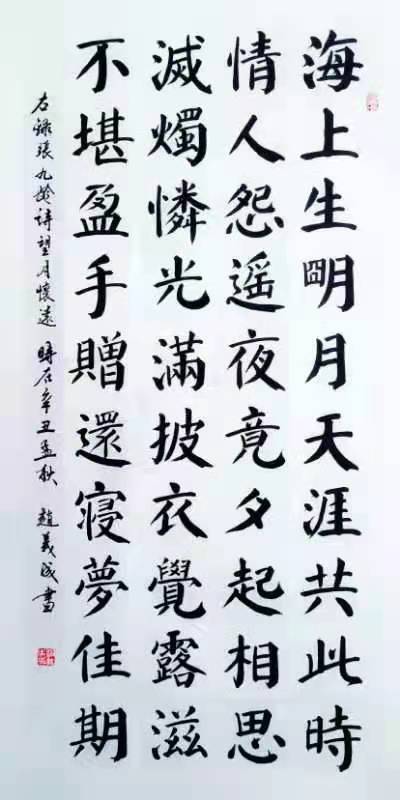 海上生朙月天涯共此時
情人怨遥夜竟夕起相思
滅燭憐光滿披衣覺露滋
不堪盈手贈還寝夢佳期
右錄張九龄詩望月懷遠 時在辛丑孟秋 趙義成書